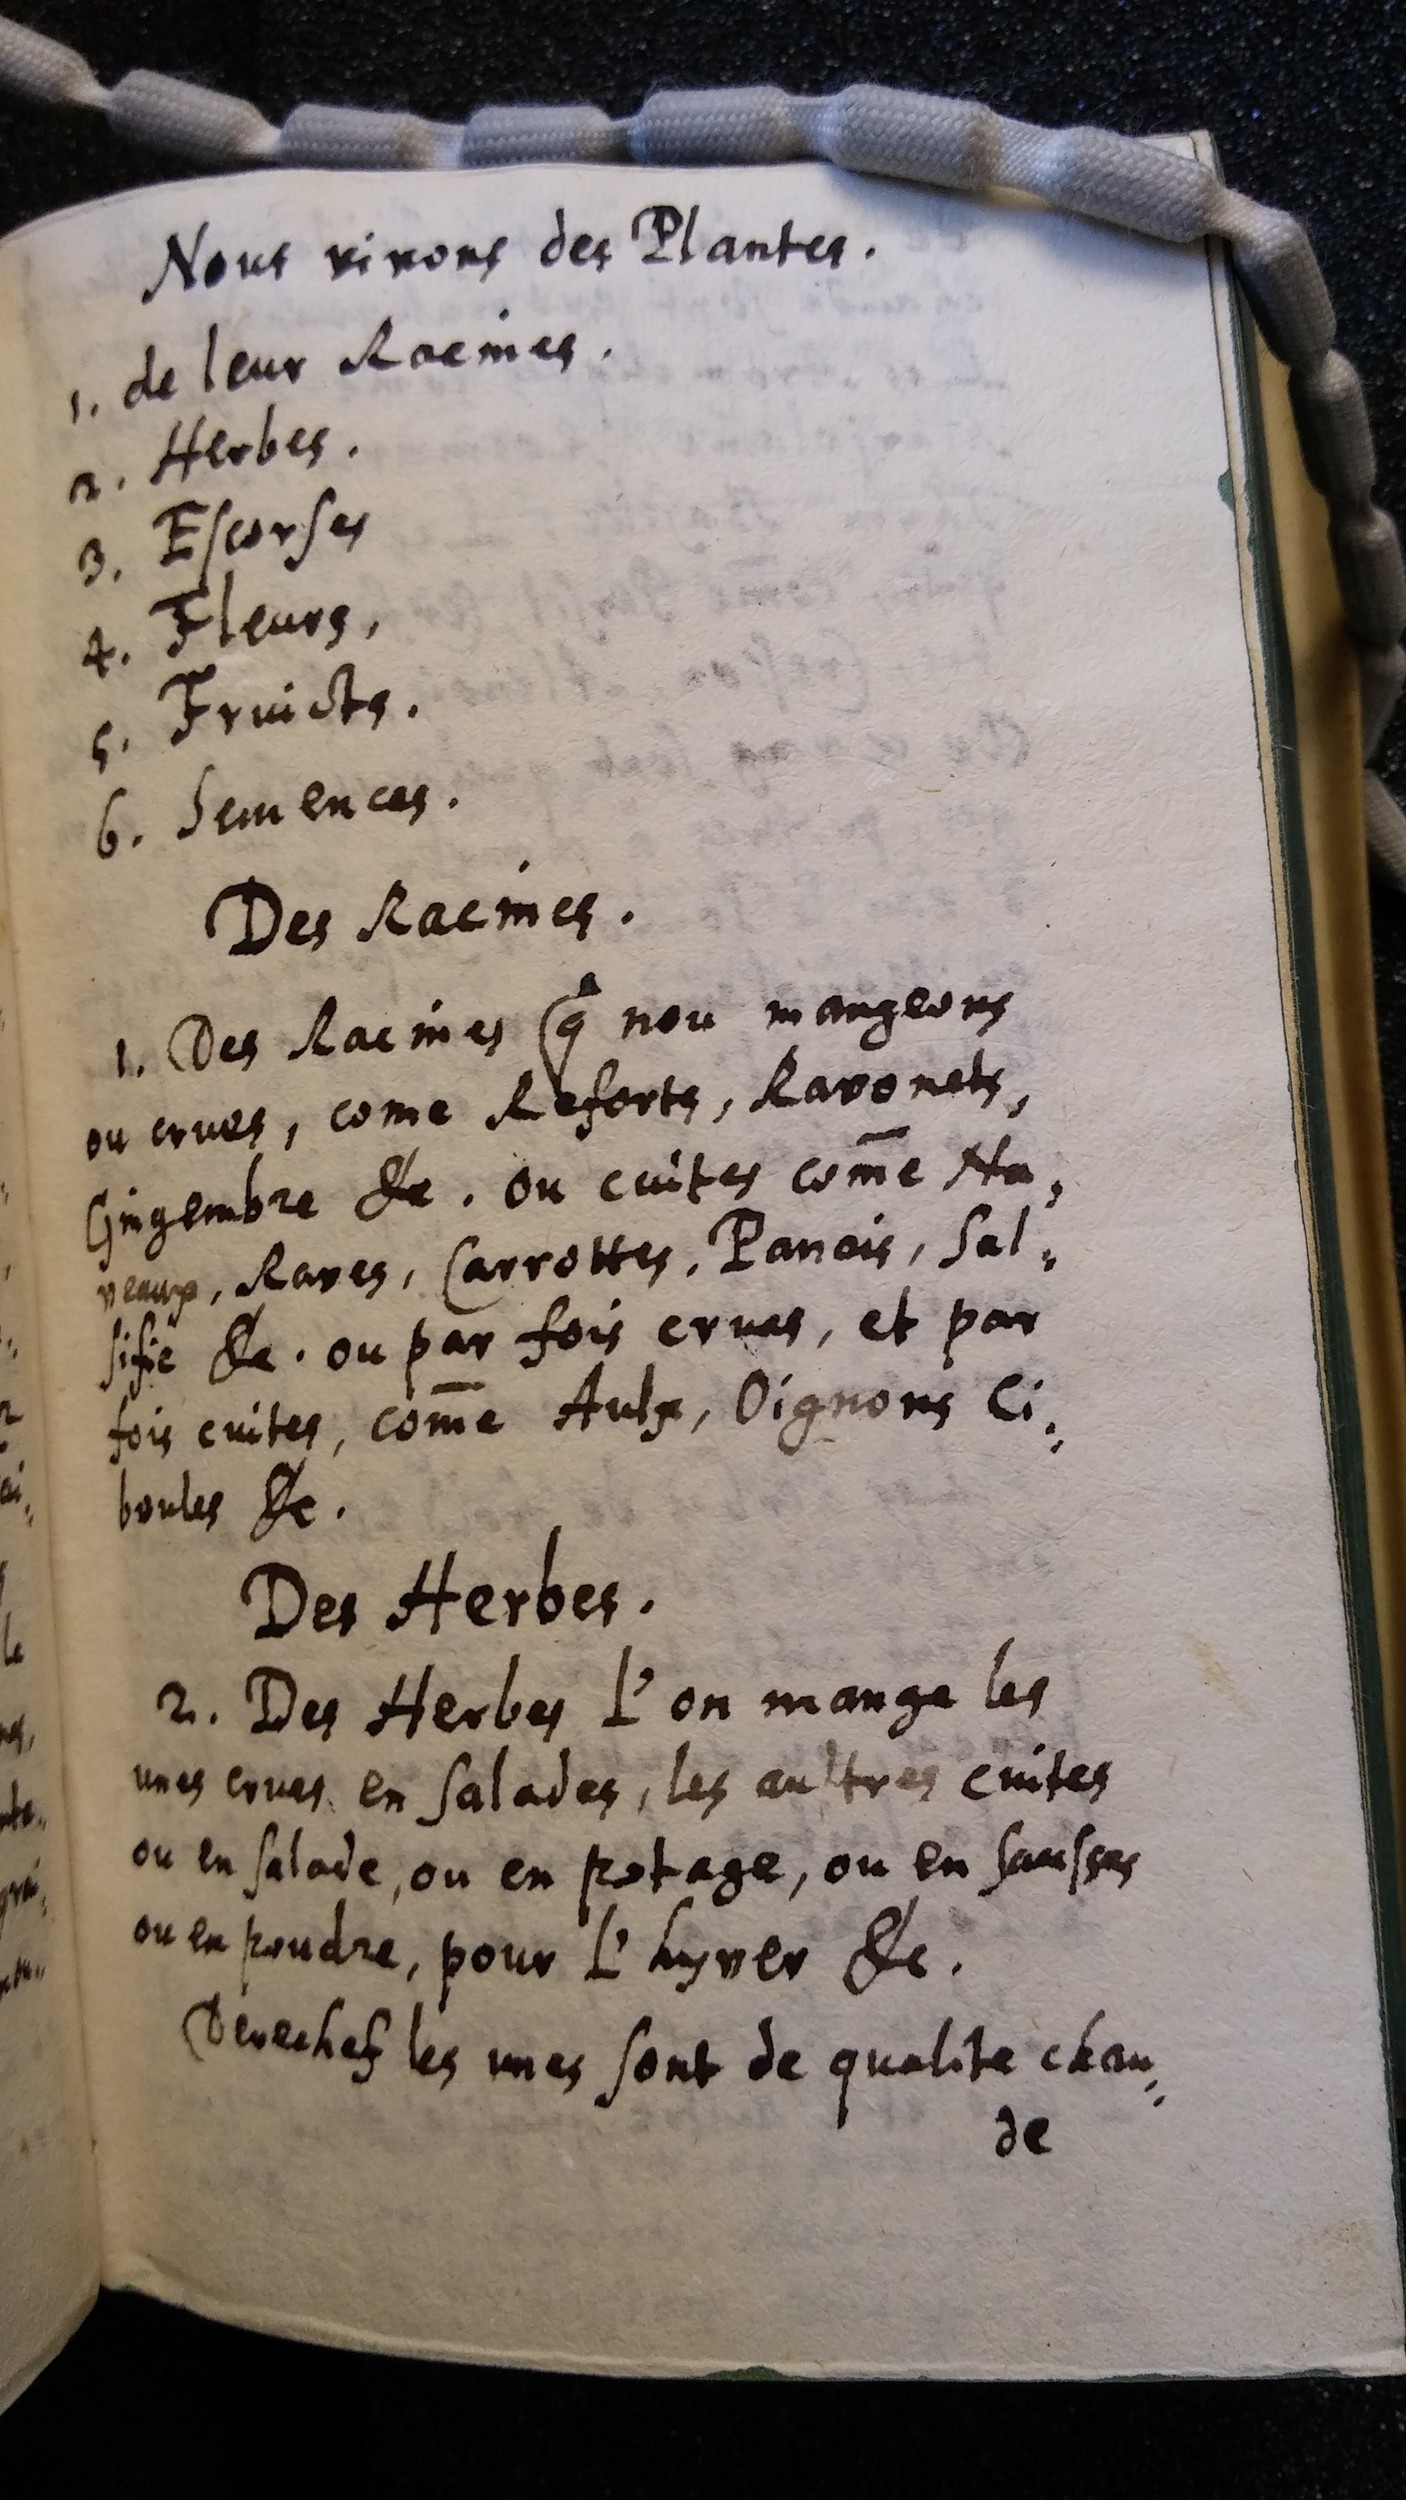 Nous vivons des Plantes.
1. de leur Racines.
2. Herbes.
3. Escorses
4. Fleurs,
5. Fruicts.
6. Semences.
Des Racines.
1. Des Racines q̃ nou mangeons
ou crues, come Reforts, Ravonets,
Gingembre &c. ou cuites com̄e Na,
veaux, Raves, Carrottes, Panais, Sal,
sifie &c. ou par fois crues, et par
fois cuites, com̄e Aulx, Oignons Ci,
boules &c.
Des Herbes.
2. Des Herbes L'on mange les
unes crues en Salades, les aultres cuites
ou en Salade, ou en potage, ou en Sausses
ou en poudre, pour L'hyver &c.
Derechef les unes sont de qualite chau,
de